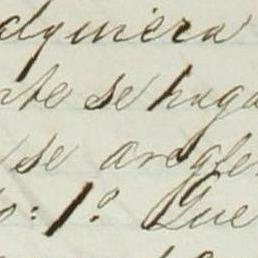 alquiera
nte se haga
se areglen
o: 1º. Que